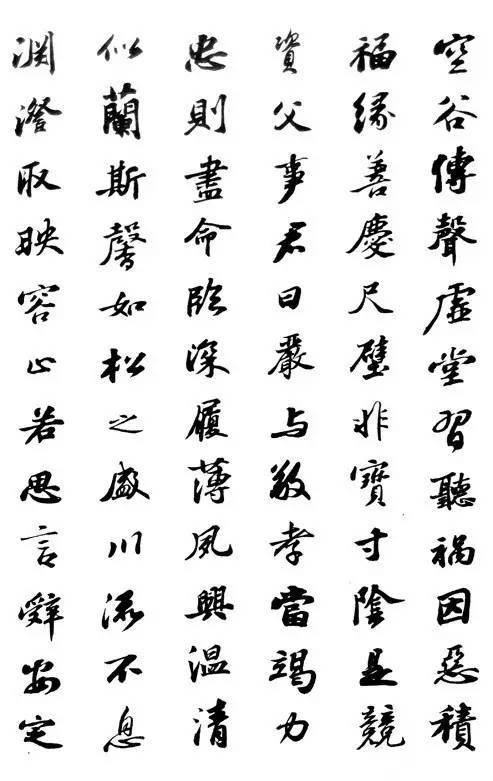 空谷傳聲虛堂習聽禍因惡積
福緣善慶尺璧非寶寸陰是競
資父事君曰嚴与敬孝當竭力
忠則盡命臨深履薄夙興溫清
似蘭斯馨如松之盛川流不息
淵澄取映容止若思言辭安定